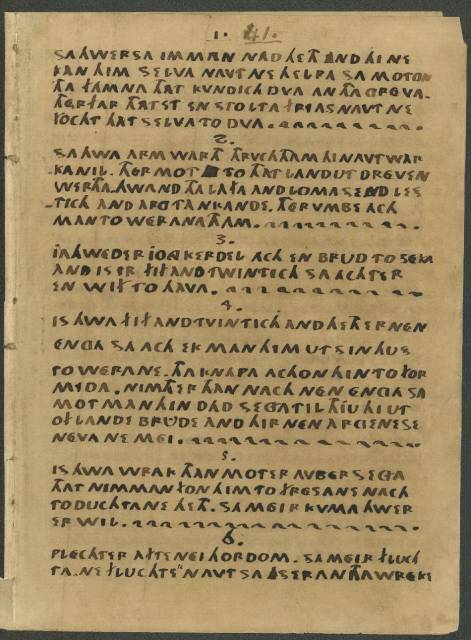 1. 41.
SAHWERSA IMMAN NAD HETH AND HI NE
KAN HIM SELVA NAVT NE HELPA SA MOTON
THA FAMNA THAT KVNDICH DVA AN THA GREVA.
THERFAR THAT ET EN STOLTA FRIAS NAVT NE
FOCHT THAT SELVA TO DVA.
2.
SA HWA ARM WARTH THRVCH THAM HI NAVT WAR
KA NIL. THER MOT TO THAT LAND UT DREVEN
WERTHA. HWAND THA LAFA AND LOMA SEND LES
TICH AND ARG TANKANDE. THERVMBE ACH
MAN TO WERANA THAM.
3.
IAHWEDER IONG KERDEL ACH EN BRUD TO SEKA
AND IS ER FIF AND TWINTICH SA ACHTER
EN WIF TO HAVA.
4.
IS HWA FIF AND TVINTICH AND HETH ER NEN
ENGA SA ACH EK MAN HIM UT SIN HUS
TO WERANE. THA KNAPA ACHON HIN TO FOR
MIDA. NIMTH ER THAN NACH NEN ENGA SA
MOT MAN HIN DAD SEGA TIL THIU HI UT
OF LANDE BRUDE AND HIR NEN ARGENESE
NEVA NE MEI.
5.
IS HWA WRAK THAN MOTER AVBER SEGA
THAT NIMMAN FON HIM TO FRESANE NACH
TO DUCHTANE HETH. SA MEIR KVMA HWER
ER WIL.
6.
PLECHTER AFTENEI HORDOM. SA MEIR FLUCH
TA. NE FLUCHTER NAVT SA IS ER AN THA WREKE